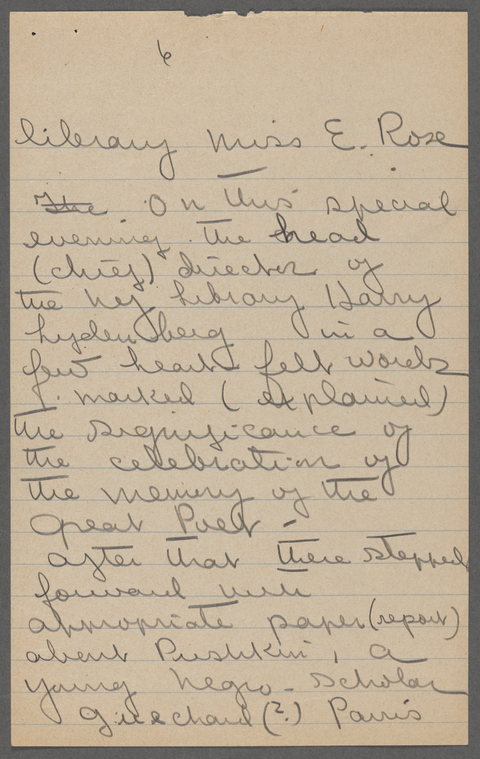 6
library Miss E. Rose
The On this special
evening the head
(chief) director of
the NY library Harry
Lydenberg in a
few heart felt words
marked (explained)
the significance of
the celebration of
the memory of the
Great Poet -
after that there stepped
forward with
appropriate paper (report)
about Pushkin, a
young negro-scholar
Guichard (?) Parris